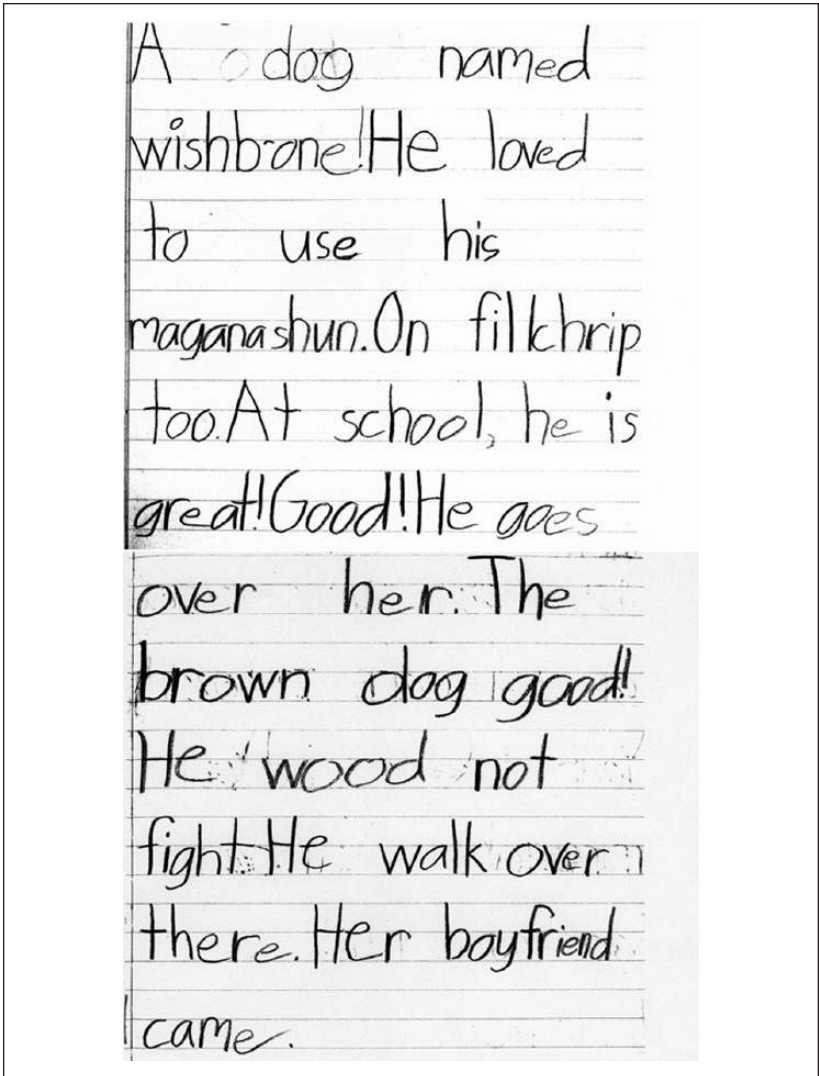 A dog named
wishbone! He loved
to use his
maganashun. On filkhrip
too. At school, he is
great! Good! He goes
over her. The
brown dog good!
He wood not
fight. He walk over
there. Her boyfriend
came.